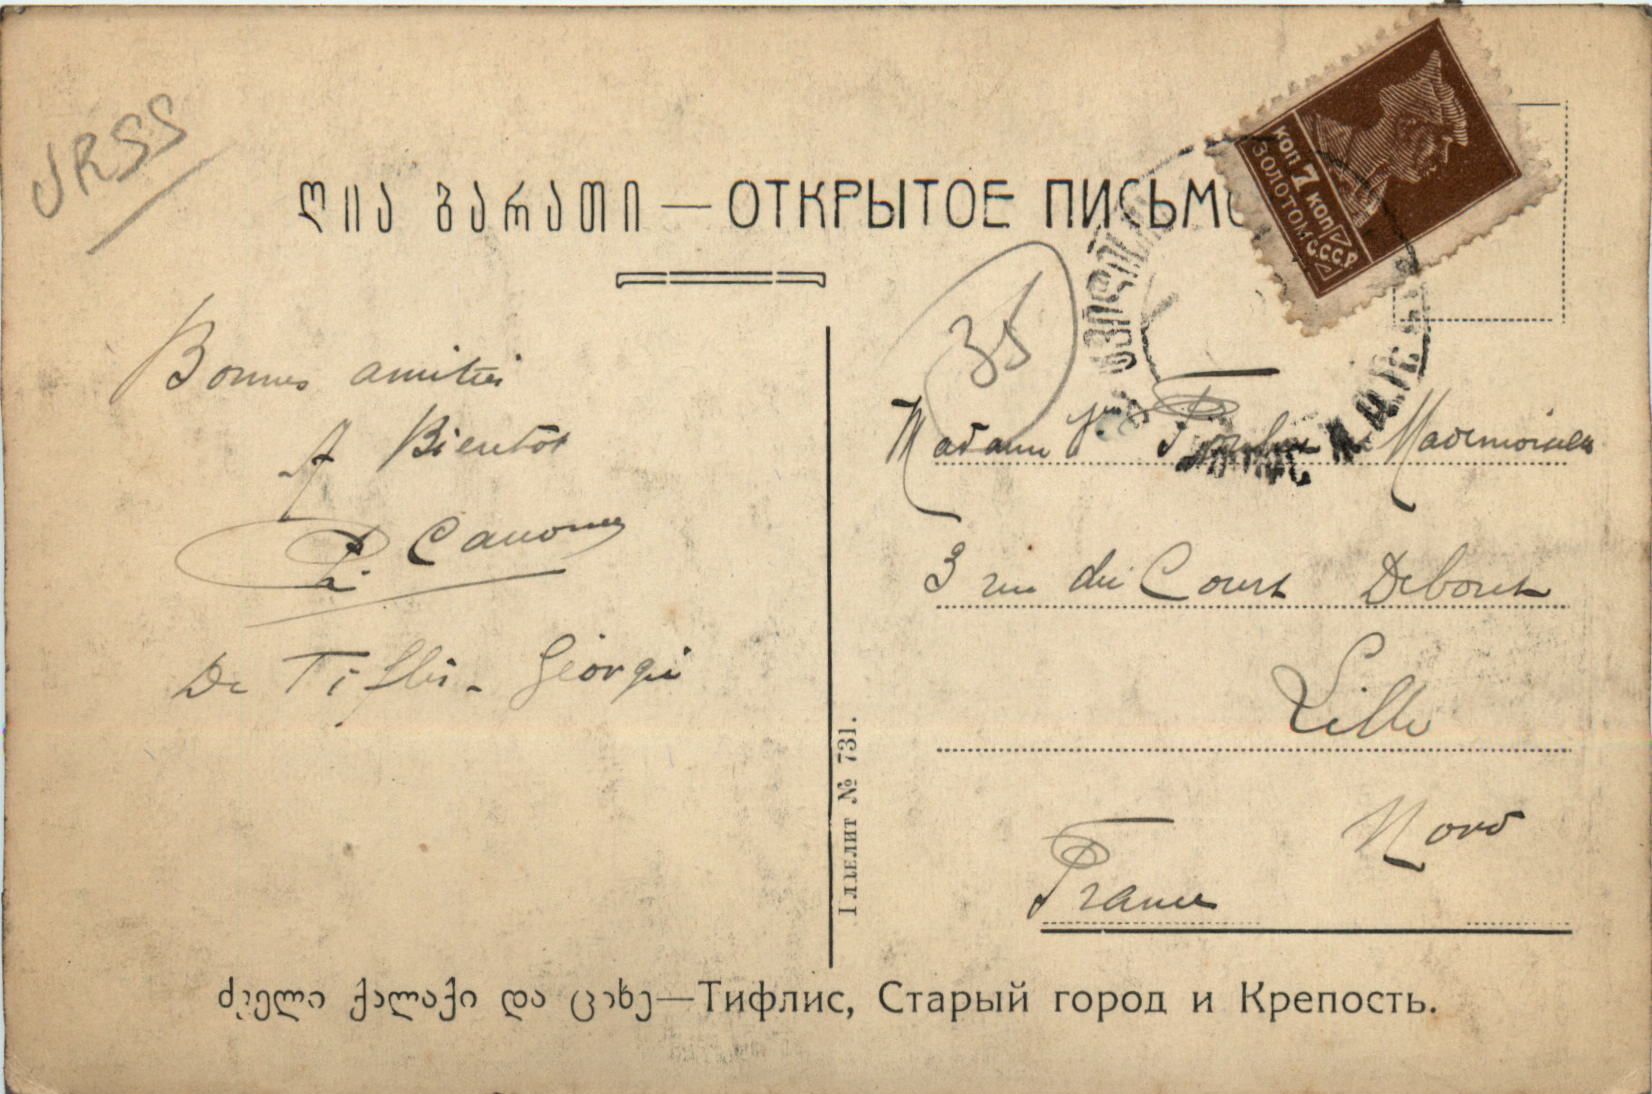 URSS
ღია ბარათი — ОТКРЫТОЕ ПИСЬМО
КОП 7 КОП
ЗОЛОТОМ С.С.С.Р.
35
Bonnes amitiés
A Bientôt
De Tiflis - Géorgie
Madame Vve Mademoiselle
3 rue du Court Debout
Lille
Nord
France
Главлит № 731.
ძველი ქალაქი და ციხე—Тифлис, Старый город и Крепость.